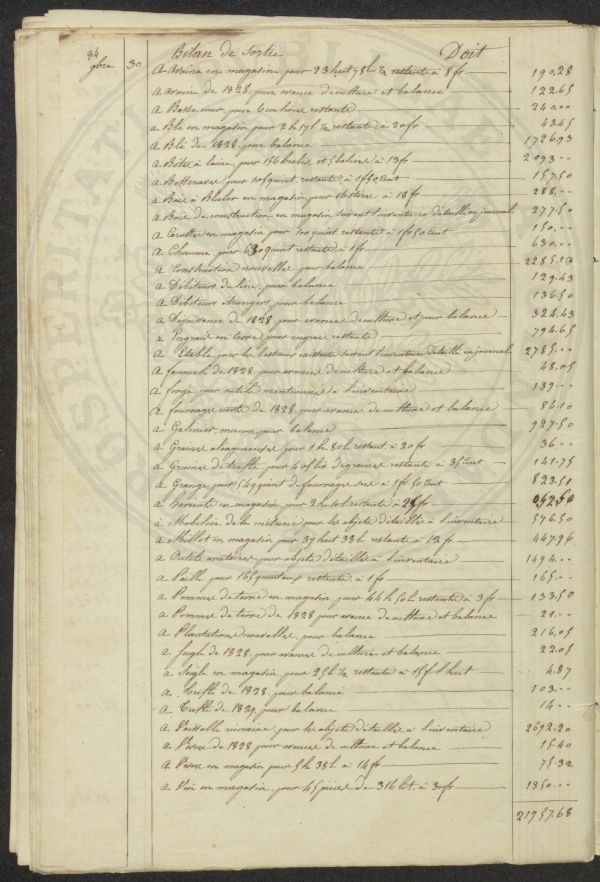 34
9bre 30 Bilan de Sortie Doit
a Avoine en magasin, pour 23 hect 78 l ½ restante à 8 fr 190,28
a avoine de 1828, pour avance de culture et balance 122.65
a Basse cour, pour 6 cochons restants 240...
a Blé en magasin pour 2 h 17 l ½ restante à 20 fr 43.45
a Blé de 1828, pour balance 1726.93
a Betes à laine, pour 156 brebis et 5 beliers, à 13 fr 2093...
a Betteraves, pour 105 quint. restante, à 1 f 50 cent 157.50
a Bois à Bruler en magasin, pour 16 stères à 18 fr 288...
a Bois de construction en magasin suivant l'inventaire détaillé au journal 277.50
a Carottes en magasin pour 100 quint. restante à 1 fr 50 cent 150...
a Chaume, pour 630 quint restante à 1 fr 630...
a Construction nouvelles, pour balance 2285.10
a Débiteurs du lieu, pour balance 129.43
a Débiteurs étrangers, pour balance 136.50
a Depaissance de 1828, pour avances de culture et pour balance 324.43
a Engrais en terre, pour engrais restante 794.65
a Etable, pour les bestiaux existants suivant l'inventaire détaillé au journal 2785...
a farouch de 1828, pour avances de culture et balance 48.05
a forge, pour outils mentionnés à l'inventaire 139...
a fourrages verts de 1828, pour avances de culture et balance 84.10
a Galinier, maçon, pour balance 927.50
a Graines oléagineuses, pour 1 h 80 l restant à 20 fr 36...
a Graines de trefle, pour 405 kil de graines restante à 35 cent 141.75
a Grange, pour 549 quint de fourrages secs à 1 fr 50 cent 823.51
a Haricots en magasin, pour 2 h 10 l restante à 25 fr 052.50
a Mobilier de la métairie, pour les objets détaillés à l'inventaire 576.50
a Millet en magasin, pour 37 hect 33 l restante à 12 fr 447.96
a Outils aratoires, pour objets détaillés à l'inventaire 1494...
a Paille, pour 165 quintaux restante, à 1 fr 165...
a Pommes de terre en magasin, pour 44 h 50 l restante à 3 fr 133.50
a Pommes de terre de 1828 pour avances de culture et balance 21...
a Plantations nouvelles, pour balance 216.05
a Seigle de 1828, pour avances de culture et balance 22.05
a Seigle en magasin, pour 25 l ½ restante à 15 f l'hect 4.87
a Trefle de 1828, pour balance 103...
a Trefle de 1829, pour balance 14...
a Vaisselle vinaire, pour les objets détaillés à l'inventaire 2692.20
a Vesces de 1828, pour avances de culture et balance 15.40
a Vesces en magasin, pour 5 h 38 l à 14 fr 75.32
a Vin en magasin, pour 45 pièces de 316 lit. à 30 fr 1350...
21957.68